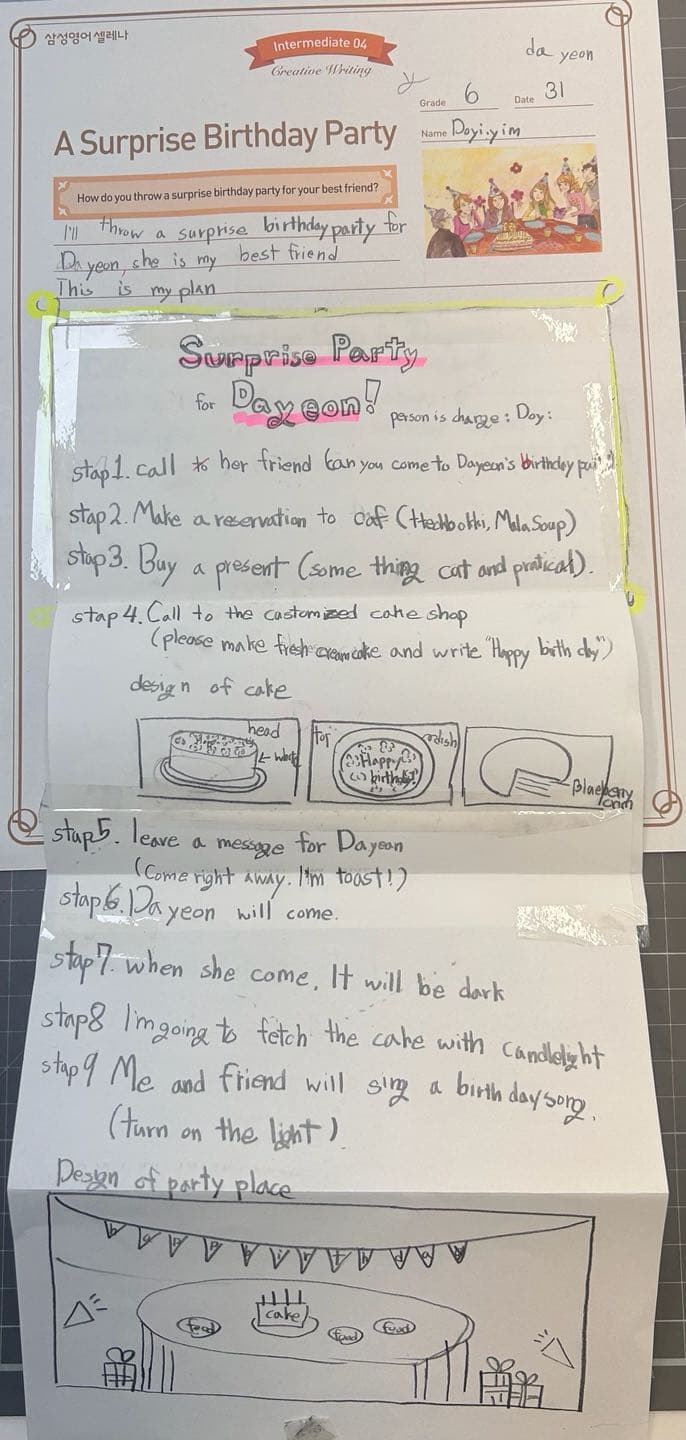 삼성영어 셀레나
Intermediate 04
Creative Writing
da yeon
Grade 6 Date 31
A Surprise Birthday Party
Name Doyi.yim
How do you throw a surprise birthday party for your best friend?
I'll throw a surprise birthday party for
Da yeon, she is my best friend
This is my plan
Surprise Party
for Dayeon!
person is charge : Doy:
stap1. call to her friend Can you come to Dayeon's birthday
stap2. Make a reservation to caf (Ttechbokki, Mala Soup)
stap3. Buy a present (some thing cat and pratical).
stap 4. Call to the customized cake shop
(please make fresh cream cake and write "Happy birth dy")
design of cake
head
top
dish
Happy
birthday
Blueberry
stap5. leave a message for Dayeon
(Come right away. I'm toast!)
stap6. Da yeon will come.
stap7. when she come, It will be dark
stap8 I'm going to fetch the cake with candlelight
stap9 Me and friend will sing a birth day song.
(turn on the light)
Design of party place
cake
food
food
food